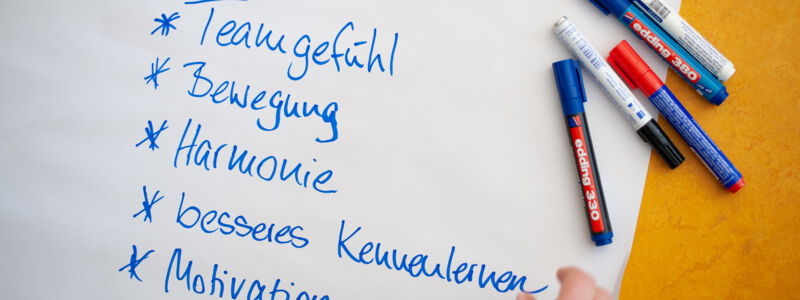 * Teamgefühl
* Bewegung
* Harmonie
* besseres Kennenlernen
* Motivation
edding 380
edding 330